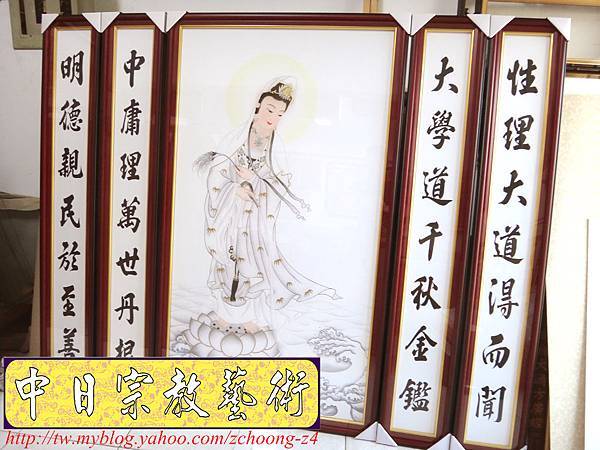 性理大道得而聞
大學道千秋金鑑
中庸理萬世丹根
明德親民於至善
中日宗教藝術
http://tw.myblog.yahoo.com/zchoong-z4